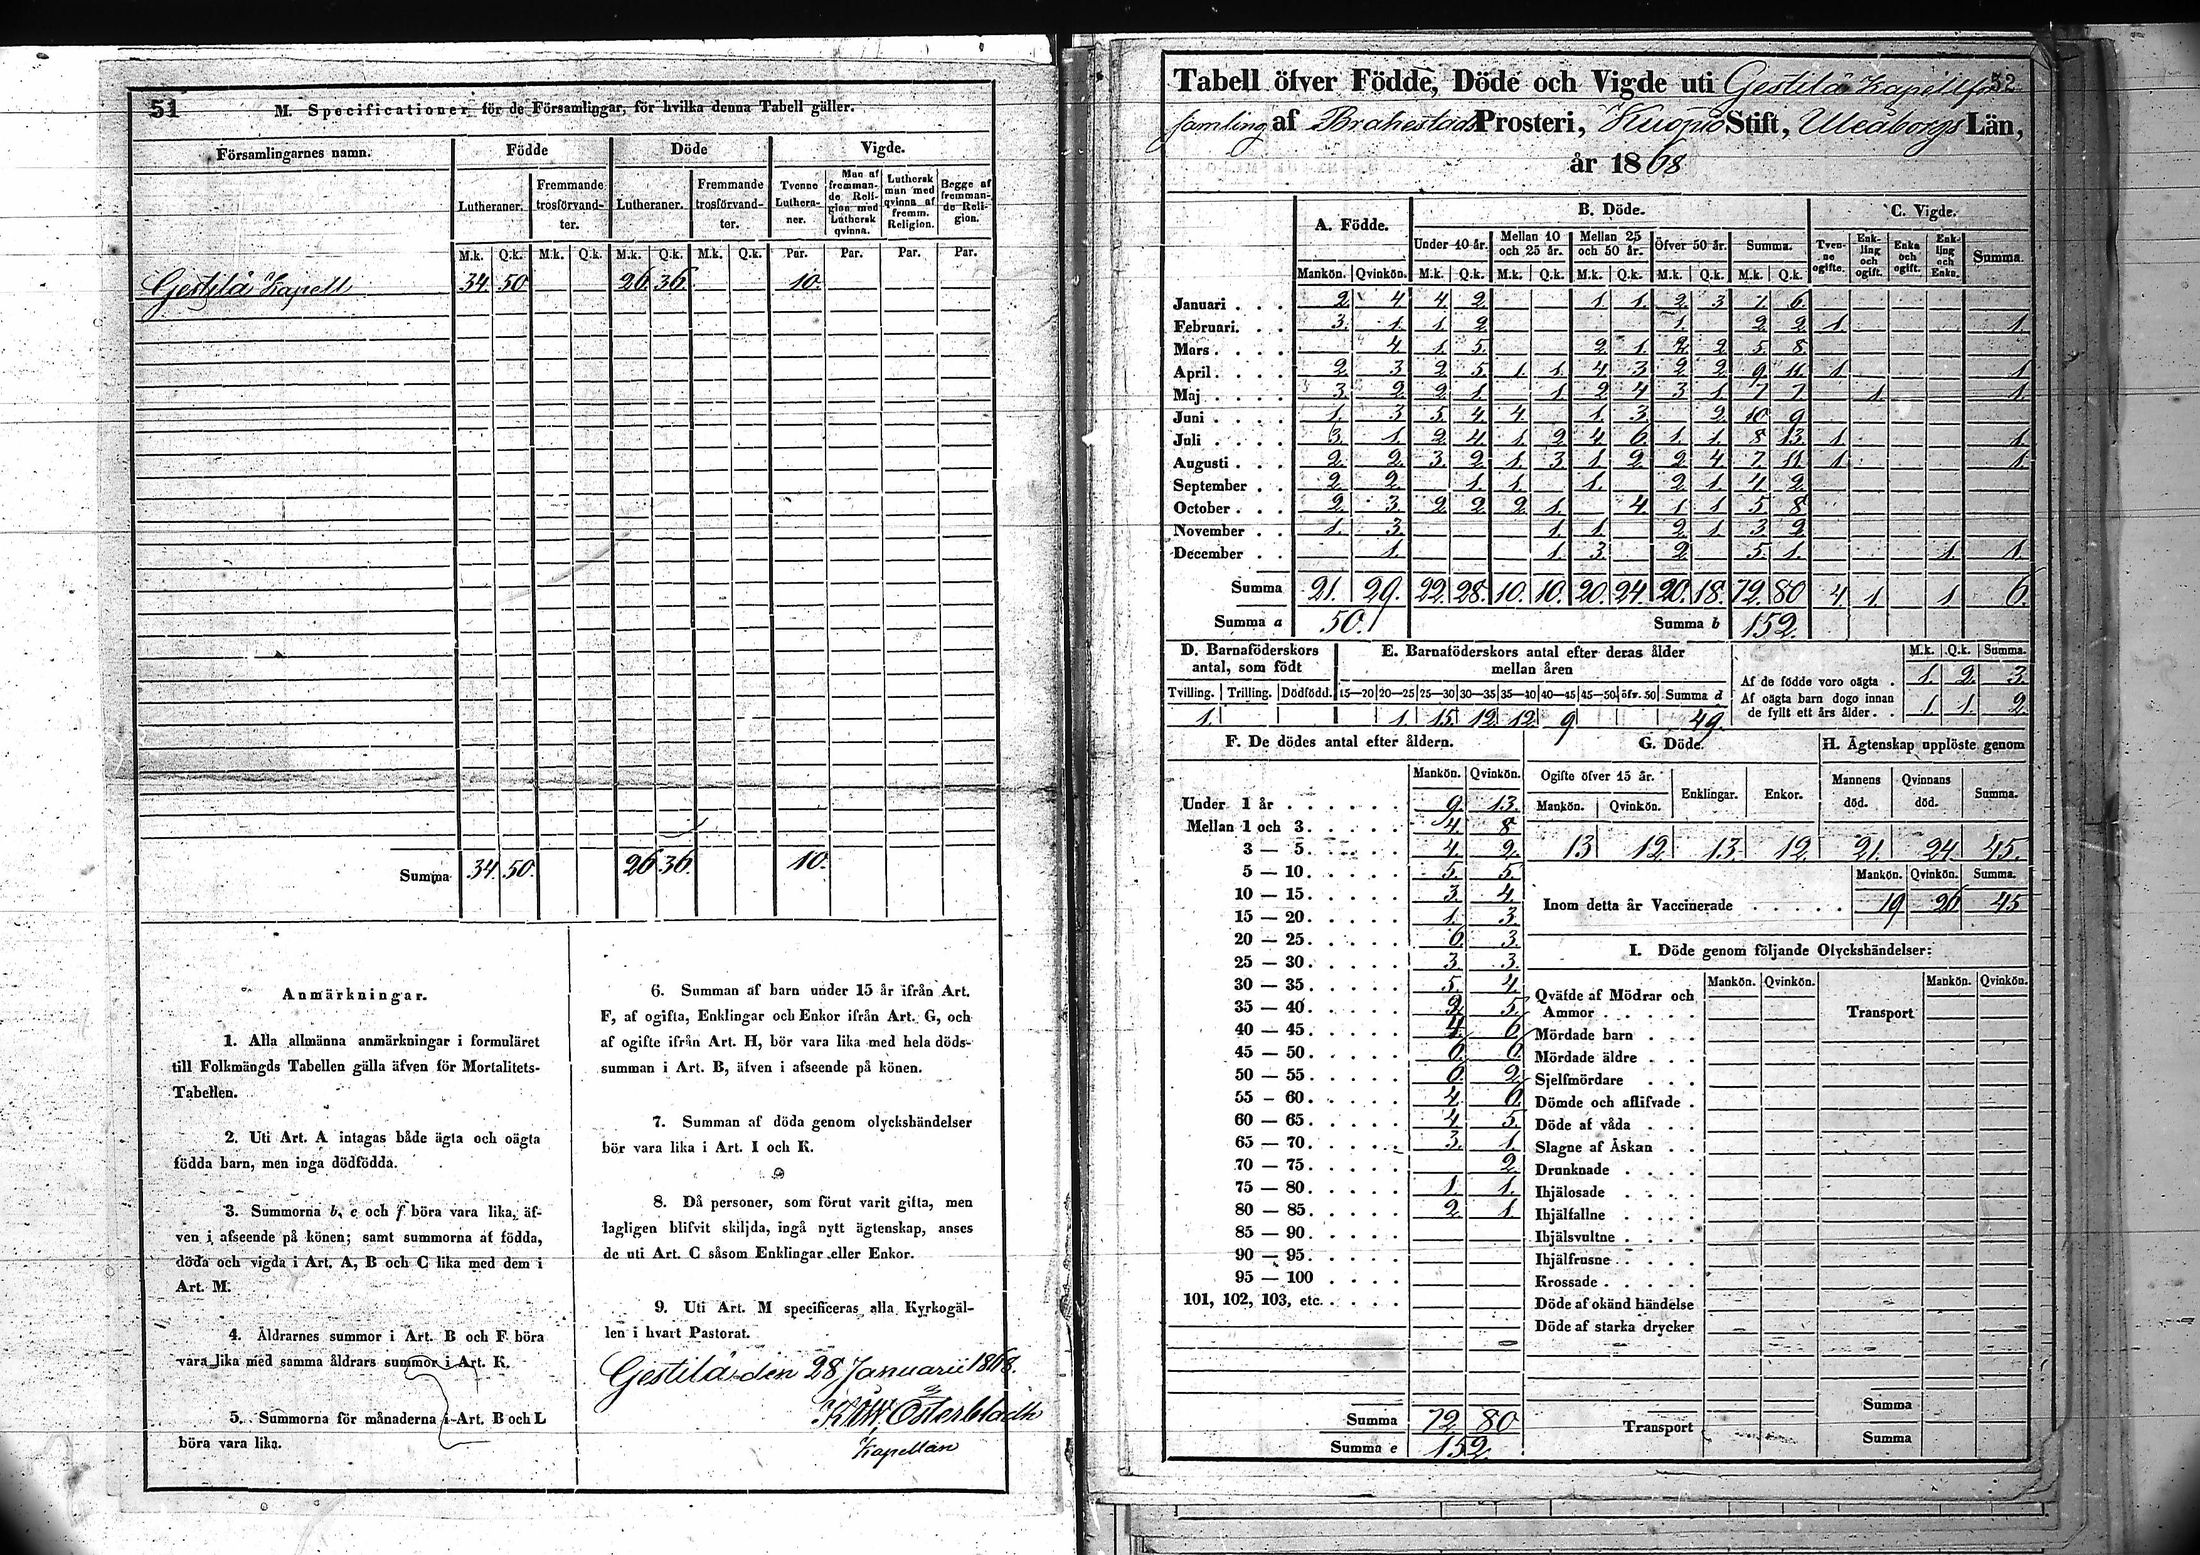 51
M. Specificationer för de Församlingar, för hvilka denna Tabell gäller.
Församlingarnes namn. Födde Döde Vigde.
Lutheraner. Fremmande trosförvandter. Lutheraner. Fremmande trosförvandter. Tvenne Lutheraner. Man af fremmande Religion med Luthersk qvinna. Luthersk man med qvinna af fremm. Religion. Begge af fremmande Religion.
M.k. Q.k. M.k. Q.k. M.k. Q.k. M.k. Q.k. Par. Par. Par. Par.
Gestilä Kapell 34 50 26 36 10.
Summa 34. 50. 26 36. 10.
Anmärkningar.
1. Alla allmänna anmärkningar i formuläret
till Folkmängds Tabellen gälla äfven för Mortalitets-
Tabellen.
2. Uti Art. A intagas både ägta och oägta
födda barn, men inga dödfödda.
3. Summorna b, e och f böra vara lika, äf-
ven i afseende på könen; samt summorna af födda,
döda och vigda i Art. A, B och C lika med dem i
Art. M.
4. Åldrarnes summor i Art. B och F böra
vara lika med samma åldrars summor i Art. K.
5. Summorna för månaderna i Art. B och L
böra vara lika.
6. Summan af barn under 15 år ifrån Art.
F, af ogifta, Enklingar och Enkor ifrån Art. G, och
af ogifte ifrån Art. H, bör vara lika med hela döds-
summan i Art. B, äfven i afseende på könen.
7. Summan af döda genom olyckshändelser
bör vara lika i Art. I och K.
8. Då personer, som förut varit gifta, men
lagligen blifvit skiljda, ingå nytt ägtenskap, anses
de uti Art. C såsom Enklingar eller Enkor.
9. Uti Art. M specificeras alla Kyrkogäl-
len i hvart Pastorat.
Gestilä den 28 Januarii 1868.
Österbladh
Kapellan
52
Tabell öfver Födde, Döde och Vigde uti Gestilä Kapellför
samling af Brahestads Prosteri, Kuopio Stift, Uleåborgs Län,
år 1868
A. Födde. B. Döde. C. Vigde.
Under 10 år. Mellan 10 och 25 år. Mellan 25 och 50 år. Öfver 50 år. Summa. Tvenne ogifte. Enkling och ogift. Enka och ogift. Enkling och Enka. Summa.
Mankön. Qvinkön. M.k. Q.k. M.k. Q.k. M.k. Q.k. M.k. Q.k. M.k. Q.k.
Januari . . . 2 4 4 2 1 1 2 3 7. 6.
Februari. . . 3. 1. 1. 2 1. 2 2 1. 1.
Mars . . . . 4. 1. 5. 2 1. 2 2 5. 8.
April . . . . 2 3 2 5 1 1 4 3 2 2 9 11 1 1
Maj . . . . 3 2 2 1 1 2 4 3 1 7 7 1 1
Juni . . . . 1. 3 5 4 4 1. 3 2 10 9
Juli . . . . 3 1 2 4 1 2 4 6 1 1 8 13 1 1
Augusti . . . 2 2 3 2 1. 3 1 2 2 4 7. 11 1 1
September . . 2 2 1. 1. 1. 2 1. 4 2
October . . . 2. 3. 2 2 2 1. 4 1 1 5 8
November . . 1. 3. 1. 1. 2 1. 3 2
December . . 1. 1. 3. 2 5. 1. 1. 1.
Summa 21. 29. 22. 28. 10. 10. 20. 24. 20. 18. 72. 80 4. 1. 1 6.
Summa a 50. Summa b 152.
D. Barnaföderskors antal, som födt
E. Barnaföderskors antal efter deras ålder mellan åren
M.k. Q.k. Summa.
Tvilling. Trilling. Dödfödd. 15—20 20—25 25—30 30—35 35—40 40—45 45—50 öfv. 50 Summa d
1. 1. 15. 12 12. 9 49.
Af de födde voro oägta . 1. 2. 3
Af oägta barn dogo innan
de fyllt ett års ålder . . 1. 1. 2
F. De dödes antal efter åldern.
Mankön. Qvinkön.
Under 1 år . . . . . . 9. 13.
Mellan 1 och 3. . . . . 4. 8
3 — 5. . . . . 4. 2.
5 — 10. . . . . 5 5
10 — 15. . . . . 3 4.
15 — 20. . . . . 1. 3.
20 — 25. . . . . 6 3.
25 — 30. . . . . 3 3.
30 — 35. . . . . 5. 4
35 — 40. . . . . 5.
40 — 45. . . . . 6
45 — 50. . . . . 6. 6.
50 — 55. . . . . 6. 2
55 — 60. . . . . 4. 6
60 — 65. . . . . 4 5.
65 — 70. . . . . 3. 1.
70 — 75. . . . . 2.
75 — 80. . . . . 1. 1.
80 — 85. . . . . 2 1.
85 — 90. . . . .
90 — 95. . . . .
95 — 100 . . . .
101, 102, 103, etc. . . . .
Summa 72 80
Summa e 152.
G. Döde.
Ogifte öfver 15 år. Enklingar. Enkor.
Mankön. Qvinkön.
13 12 13. 12
H. Ägtenskap upplöste genom
Mannens död. Qvinnans död. Summa.
21. 24 45.
Mankön. Qvinkön. Summa.
Inom detta år Vaccinerade . . . . . 19 26 45
I. Döde genom följande Olyckshändelser:
Mankön. Qvinkön. Mankön. Qvinkön.
Qväfde af Mödrar och
Ammor . . . . . Transport
Mördade barn . . .
Mördade äldre . . .
Sjelfmördare . . .
Dömde och aflifvade .
Döde af våda . . .
Slagne af Åskan . .
Drunknade . . . .
Ihjälosade . . . .
Ihjälfallne . . . .
Ihjälsvultne . . . .
Ihjälfrusne . . . .
Krossade . . . . .
Döde af okänd händelse
Döde af starka drycker
Summa
Transport
Summa